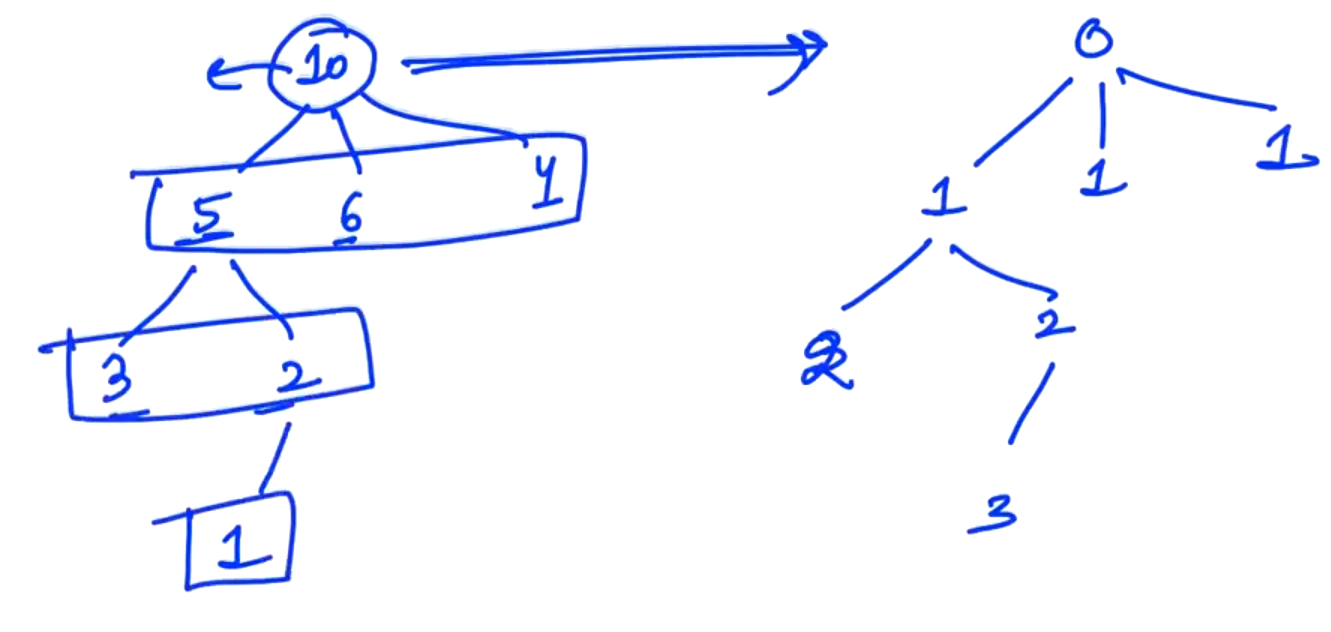 10
5 6 4
3 2
1
0
1 1 1
2 2
3